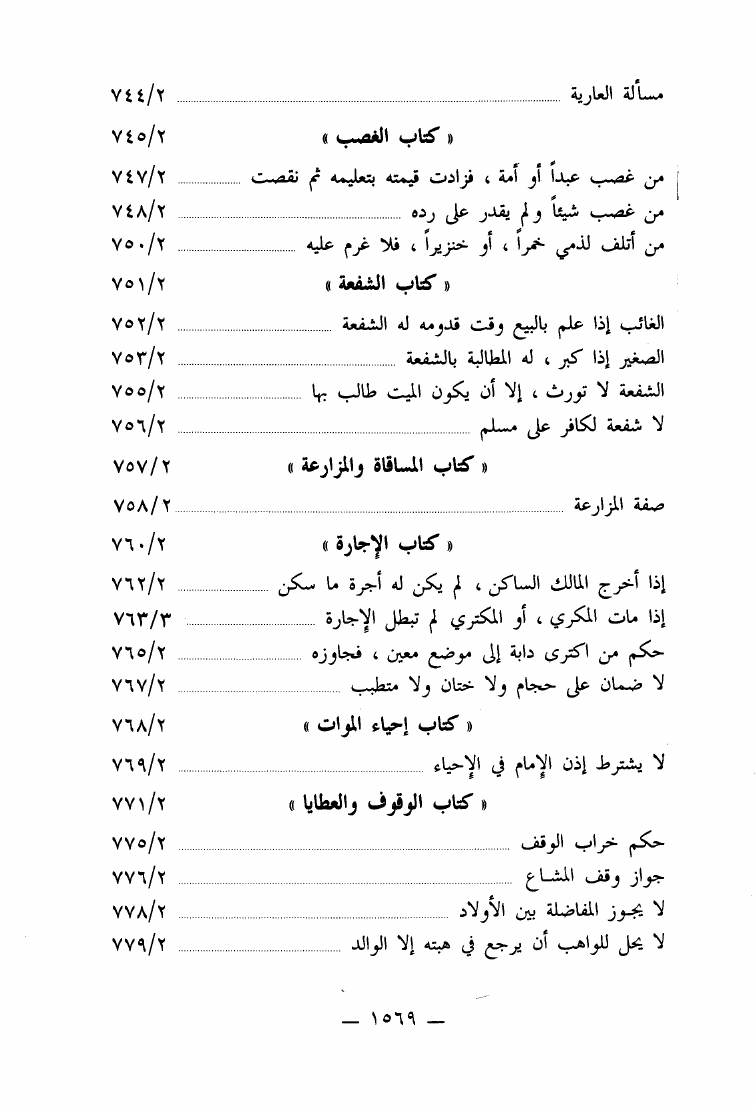 مسألة العارية ٧٤٤/٢
« كتاب الغصب » ٧٤٥/٢
من غصب عبداً أو أمة ، فزادت قيمته بتعليمه ثم نقصت ٧٤٧/٢
من غصب شيئاً ولم يقدر على رده ٧٤٨/٢
من أتلف لذمي خمراً ، أو خنزيراً ، فلا غرم عليه ٧٥٠/٢
« كتاب الشفعة » ٧٥١/٢
الغائب إذا علم بالبيع وقت قدومه له الشفعة ٧٥٢/٢
الصغير إذا كبر ، له المطالبة بالشفعة ٧٥٣/٢
الشفعة لا تورث ، إلا أن يكون الميت طالب بها ٧٥٥/٢
لا شفعة لكافر على مسلم ٧٥٦/٢
« كتاب المساقاة والمزارعة » ٧٥٧/٢
صفة المزارعة ٧٥٨/٢
« كتاب الإجارة » ٧٦٠/٢
إذا أخرج المالك الساكن ، لم يكن له أجرة ما سكن ٧٦٢/٢
إذا مات المكري ، أو المكتري لم تبطل الإجارة ٧٦٣/٣
حكم من اكترى دابة إلى موضع معين ، فجاوزه ٧٦٥/٢
لا ضمان على حجام ولا ختان ولا متطبب ٧٦٧/٢
« كتاب إحياء الموات » ٧٦٨/٢
لا يشترط إذن الإمام في الإحياء ٧٦٩/٢
« كتاب الوقوف والعطايا » ٧٧١/٢
حكم خراب الوقف ٧٧٥/٢
جواز وقف المشاع ٧٧٦/٢
لا يجوز المفاضلة بين الأولاد ٧٧٨/٢
لا يحل للواهب أن يرجع في هبته إلا الوالد ٧٧٩/٢
— ١٥٦٩ —